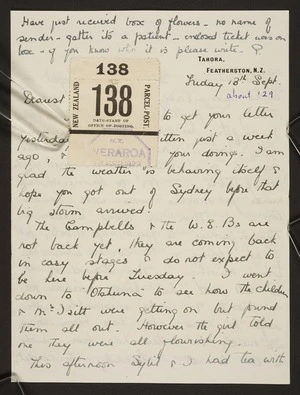 Have just received box of flowers - no name of
sender - gather its a patient - enclosed ticket was on
box - if you know who it is please write - P
TAHORA,
FEATHERSTON, N.Z.
Friday 13th Sept.
about '29
138
NEW ZEALAND
138
PARCEL POST.
DATE-STAMP OF
OFFICE OF POSTING.
WERAROA
Dearest
to get your letter
yesterday
written just a week
ago,
your doings. I am
glad the weather is behaving itself &
hope you got out of Sydney before that
big storm arrived!
The Campbells & the W.E.Bs are
not back yet, they are coming back
in easy stages & do not expect to
be here before Tuesday. I went
down to "Otahuna" to see how the children
& Mr Isitt were getting on but found
them all out. However the girl told
me they were all flourishing.
This afternoon Sybil & I had tea with